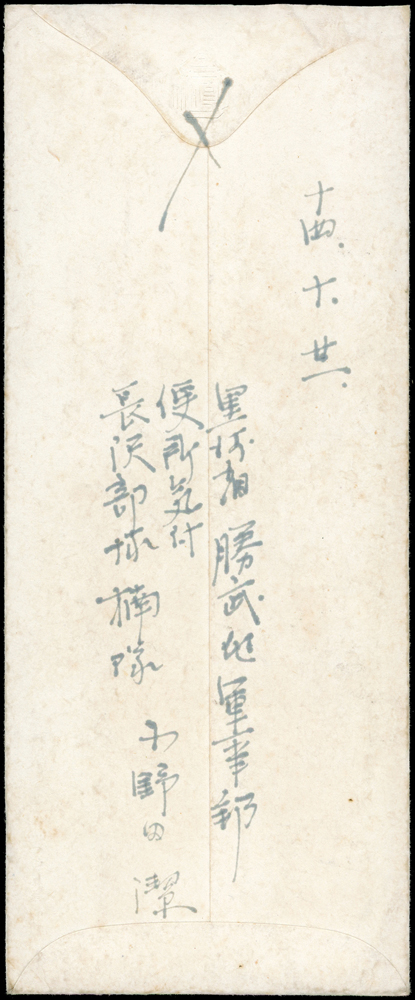 十四、十、廿一、
黒河省 勝武屯 軍事郵
便所気付
長沢部隊 楠隊
小野田 潔